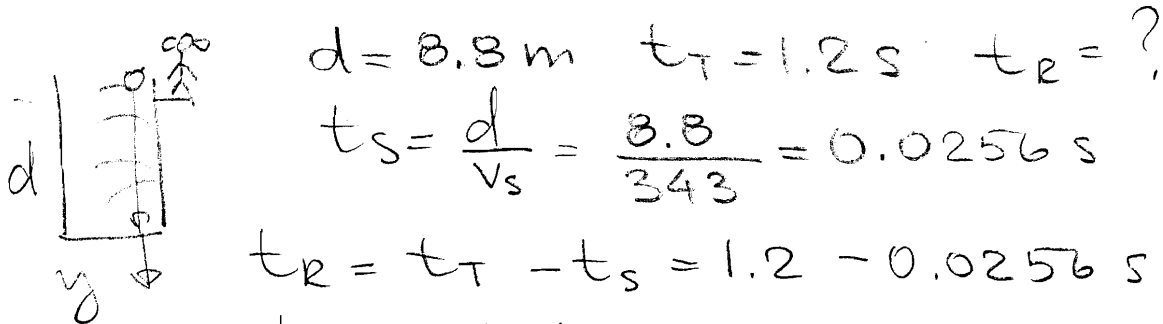 d = 8.8 m t_T = 1.2 s t_R = ?
t_S = d/v_s = 8.8/343 = 0.0256 s
d
t_R = t_T - t_S = 1.2 - 0.0256 s
y